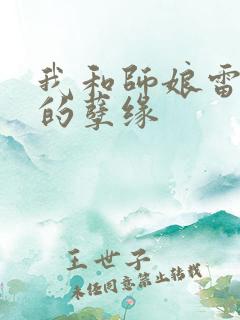 我和師娘雷
的孽緣
王世子
未经同意禁止转载